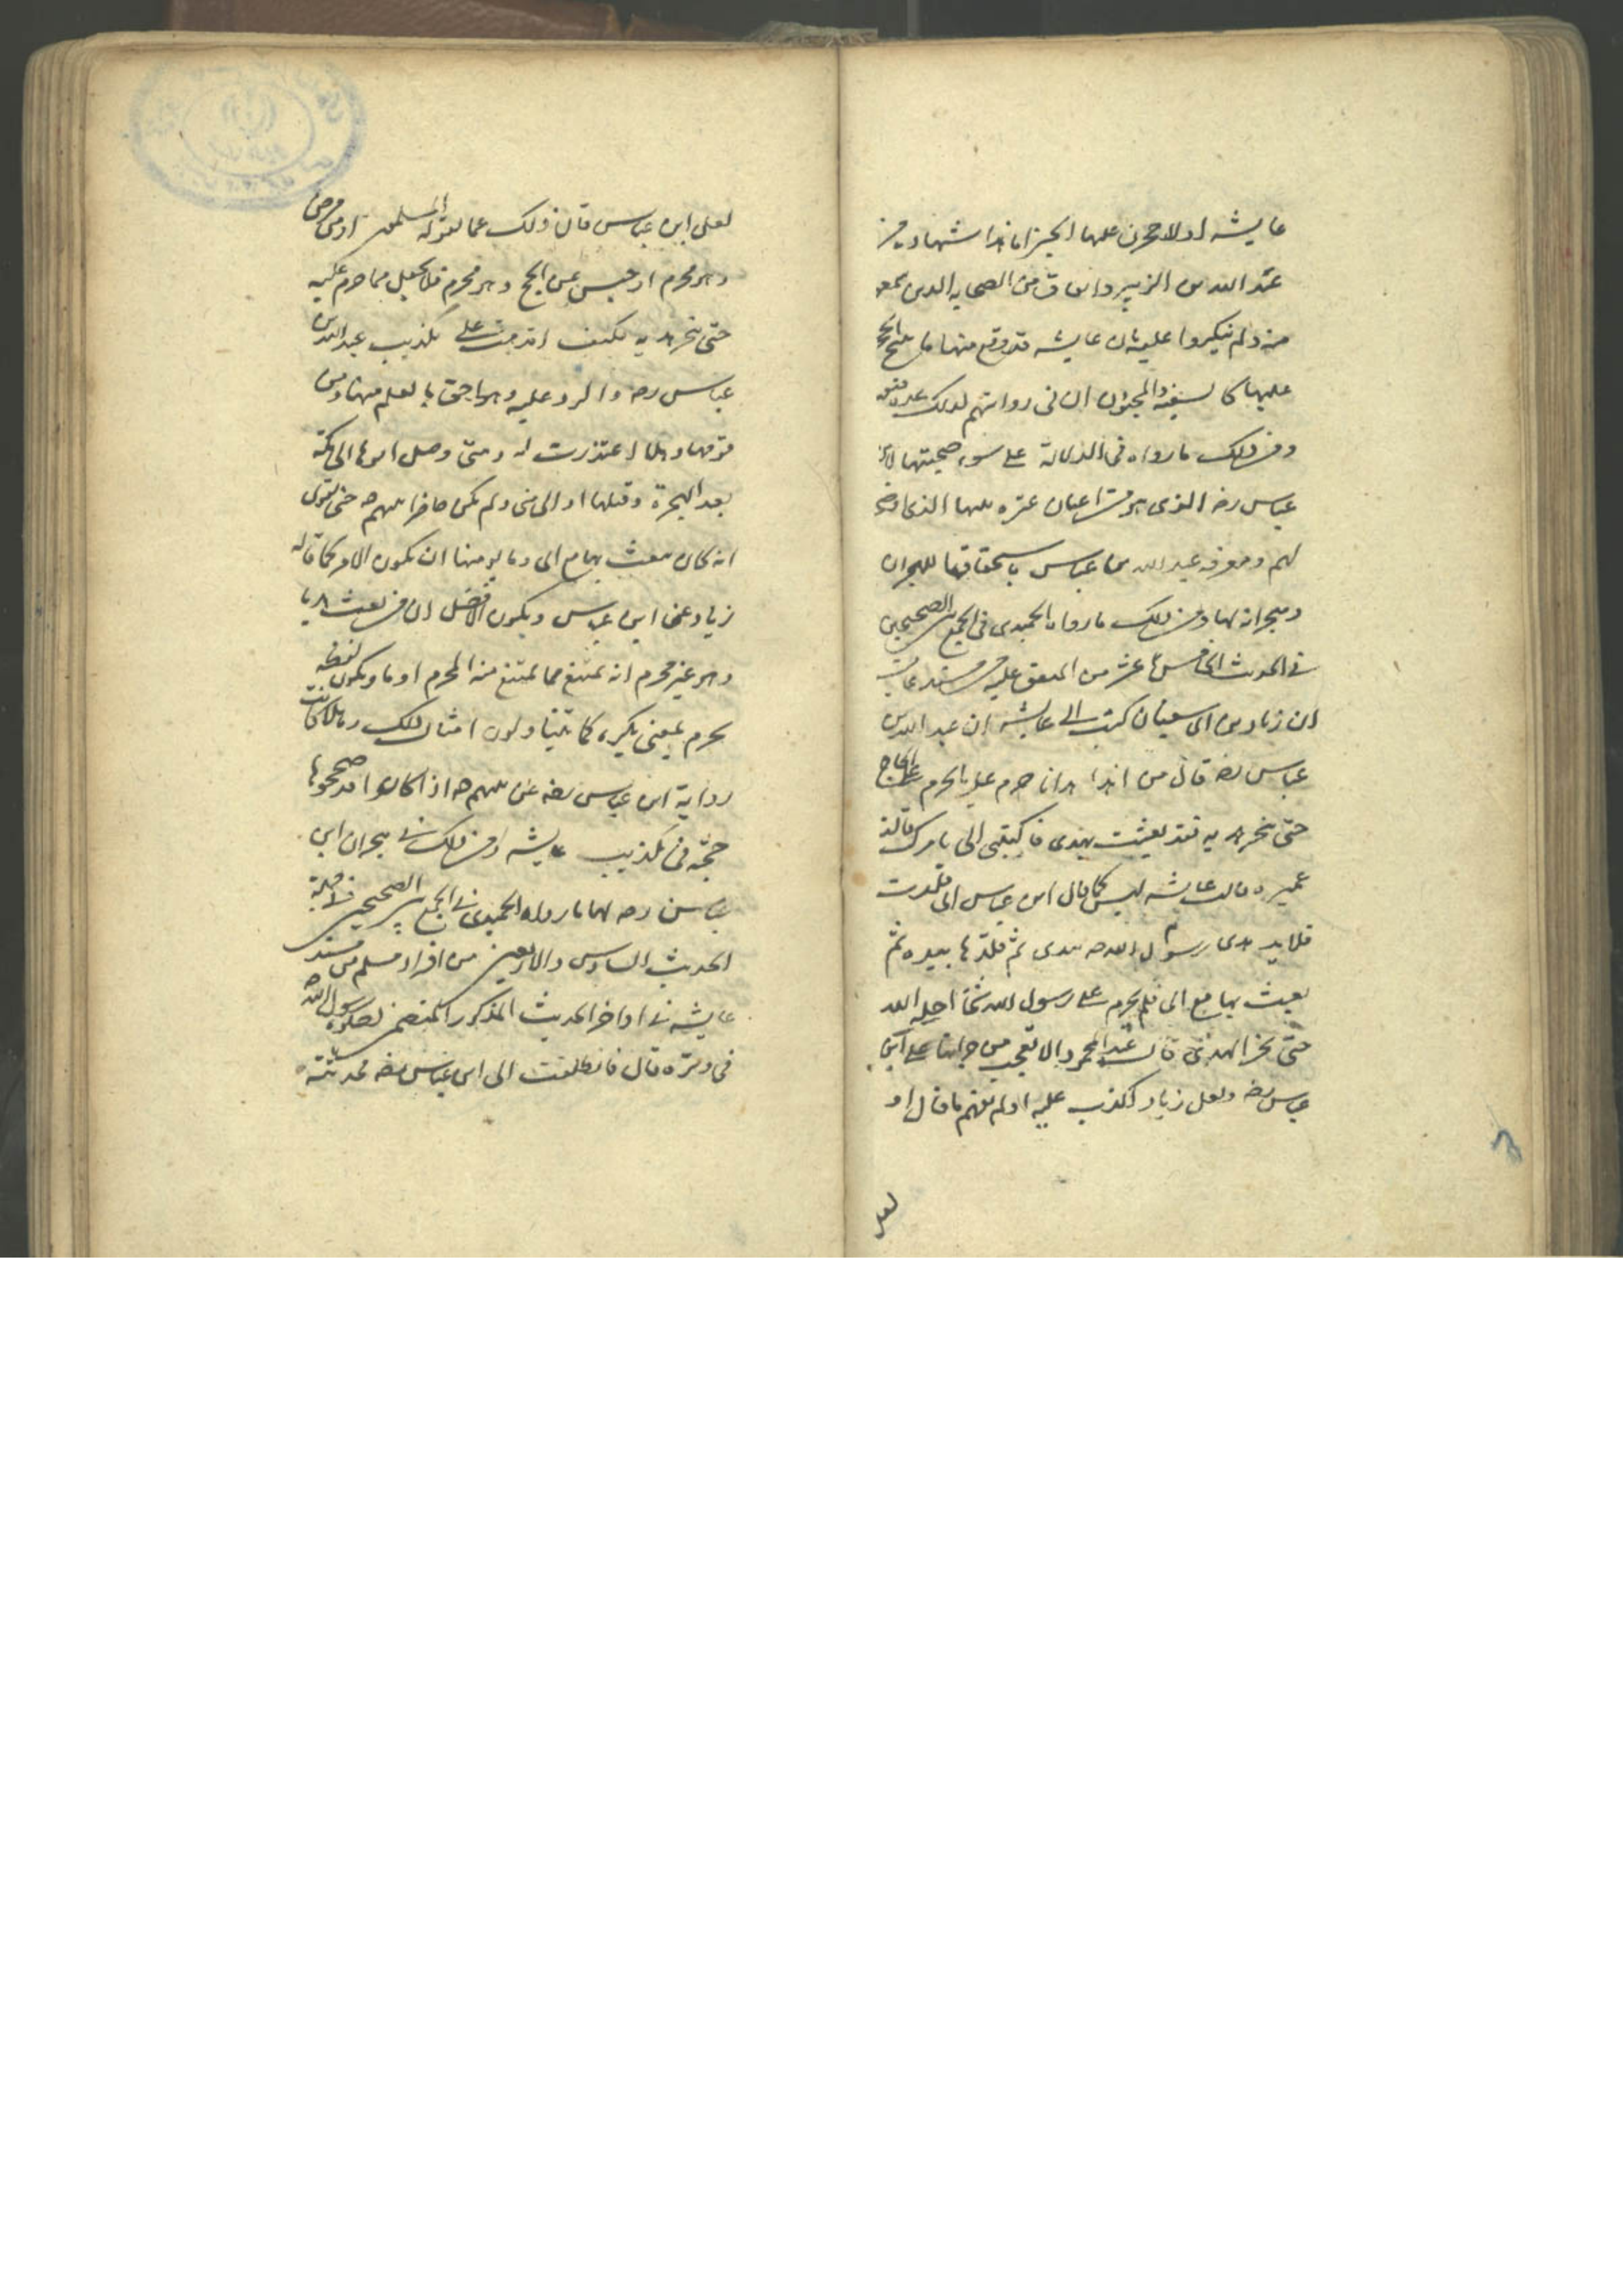 عايشه او لاحجرن عليها الحجر اما هذا شهادة من
عبد الله بن الزبير واتفاق من الصحابه الذين سمعوا
منه ولم ينكروا عليه بان عايشه قد وقع منها ما يبيح الحجر
عليها كالسفيه والمجنون ان في روايتهم لذلك عدة
ومن ذلك ما رواه في الدلالة على سوء صحبتها لابن
عباس رضه الذي هو من اعيان عترة نبيها الذي اوصى
لهم ومعرفه عبد الله بن عباس باستحقاقها للهجران
وهجرانه لها ومن ذلك ما رواه الحميدي في الجمع بين الصحيحين
في الحديث الخامس عشر من المتفق عليه من مسند عايشه
ان زياد بن ابي سفيان كتب الى عايشه ان عبد الله بن
عباس رضه قال من اهدا هديا حرم عليه ما يحرم على الحاج
حتى ينحر هديه فقد بعثت بهدى فاكتبى الى بامرك قالت
عميره وقالت عايشه ليس كما قال ابن عباس انى قلدت
قلايد هدى رسول الله صه بيدى ثم قلدها بيده ثم
بعث بها مع ابى فلم يحرم على رسول الله شيئا احله الله
حتى نحر الهدى قال عبد المحمود الا تعجب من جراتها على ابن
عباس رضه ولعل زياد اكذب عليه او لم يفهم ما قال او
لعل
لعل ابن عباس قال ذلك عما يقوله المسلمون او من مرض
وهو محرم او حبس عن الحج وهو محرم فلا يحل مما حرم عليه
حتى ينحر هديه فكيف اقدمت على تكذيب عبد الله بن
عباس رضه والرد عليه وهو احق بالعلم منها ومن
قومها وهلا اعتذرت له ومتى وصل ابوها الى مكة
بعد الهجرة وقبلها او الى منى ولم يكن حاضرا نبيهم صه حتى يقول
انه كان يبعث بها مع ابى وما يومنها ان يكون الامر كما قاله
زياد عن ابن عباس ويكون الافضل ان من بعث هديا
وهو غير محرم انه يمتنع مما يمتنع منه المحرم اوما ويكون لفظه
يحرم بمعنى يكره كما يتناولون امثال ذلك وهلا كانت
رواية ابن عباس رضه عن نبيهم صه اذا كانوا قد صححوها
حجة في تكذيب عايشه ومن ذلك في هجران ابن
عباس رضه لها ما رواه الحميدى في الجمع بين الصحيحين
الحديث السادس والاربعين من افراد مسلم من مسند
عايشه في اواخر الحديث المذكور المتضمن لصلوة رسول الله صه
في وتره قال فانطلقت الى ابن عباس رضه فحدثته